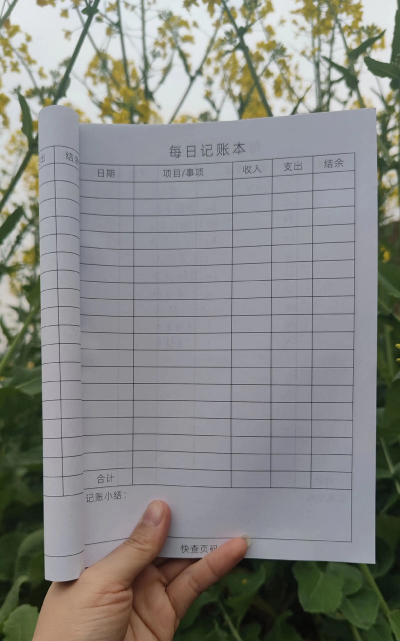 每日记账本
日期 项目/事项 收入 支出 结余
合计
记账小结：
快查页码